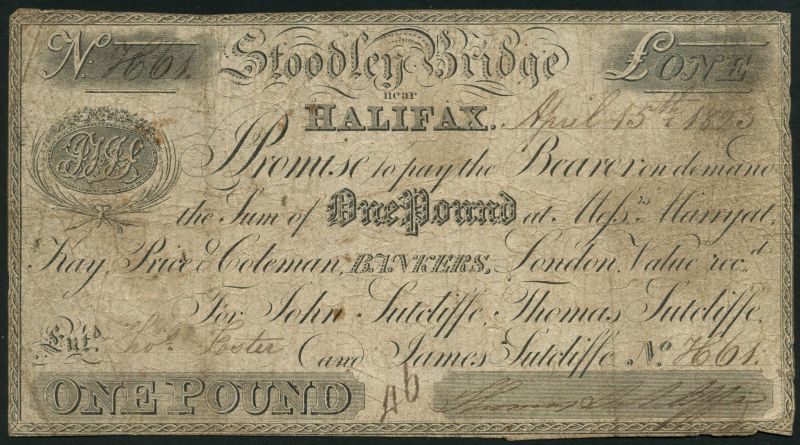 No. H61. Stoodley Bridge £ONE
near
HALIFAX. April 15th 1823
I Promise to pay the Bearer on demand
the Sum of One Pound at Messrs. Marryat,
Kay, Price & Coleman, BANKERS, London, Value recd.
For John Sutcliffe, Thomas Sutcliffe,
Entd. Thos. and James Sutcliffe. No. H61.
ONE POUND 46